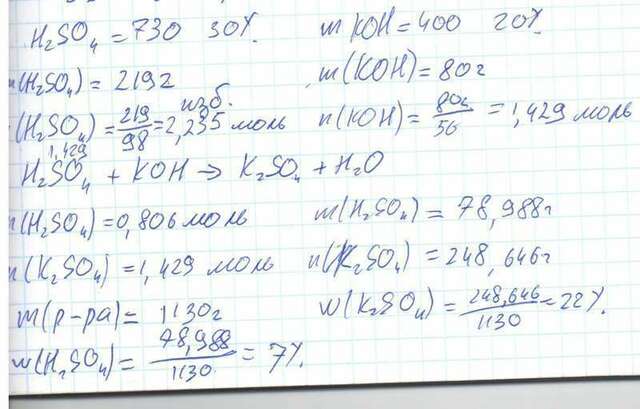 H₂SO₄ = 730 30%. m KOH = 400 20%
m(H₂SO₄) = 219г m(KOH) = 80г
изб.
(H₂SO₄) = 219/98 = 2,235 моль n(KOH) = 80г/56 = 1,429 моль
1,429
H₂SO₄ + KOH → K₂SO₄ + H₂O
n(H₂SO₄) = 0,806 моль m(H₂SO₄) = 78,988г
n(K₂SO₄) = 1,429 моль n(K₂SO₄) = 248,646г
m(р-ра) = 1130г w(K₂SO₄) = 248,646/1130 = 22%.
w(H₂SO₄) = 78,988/1130 = 7%.